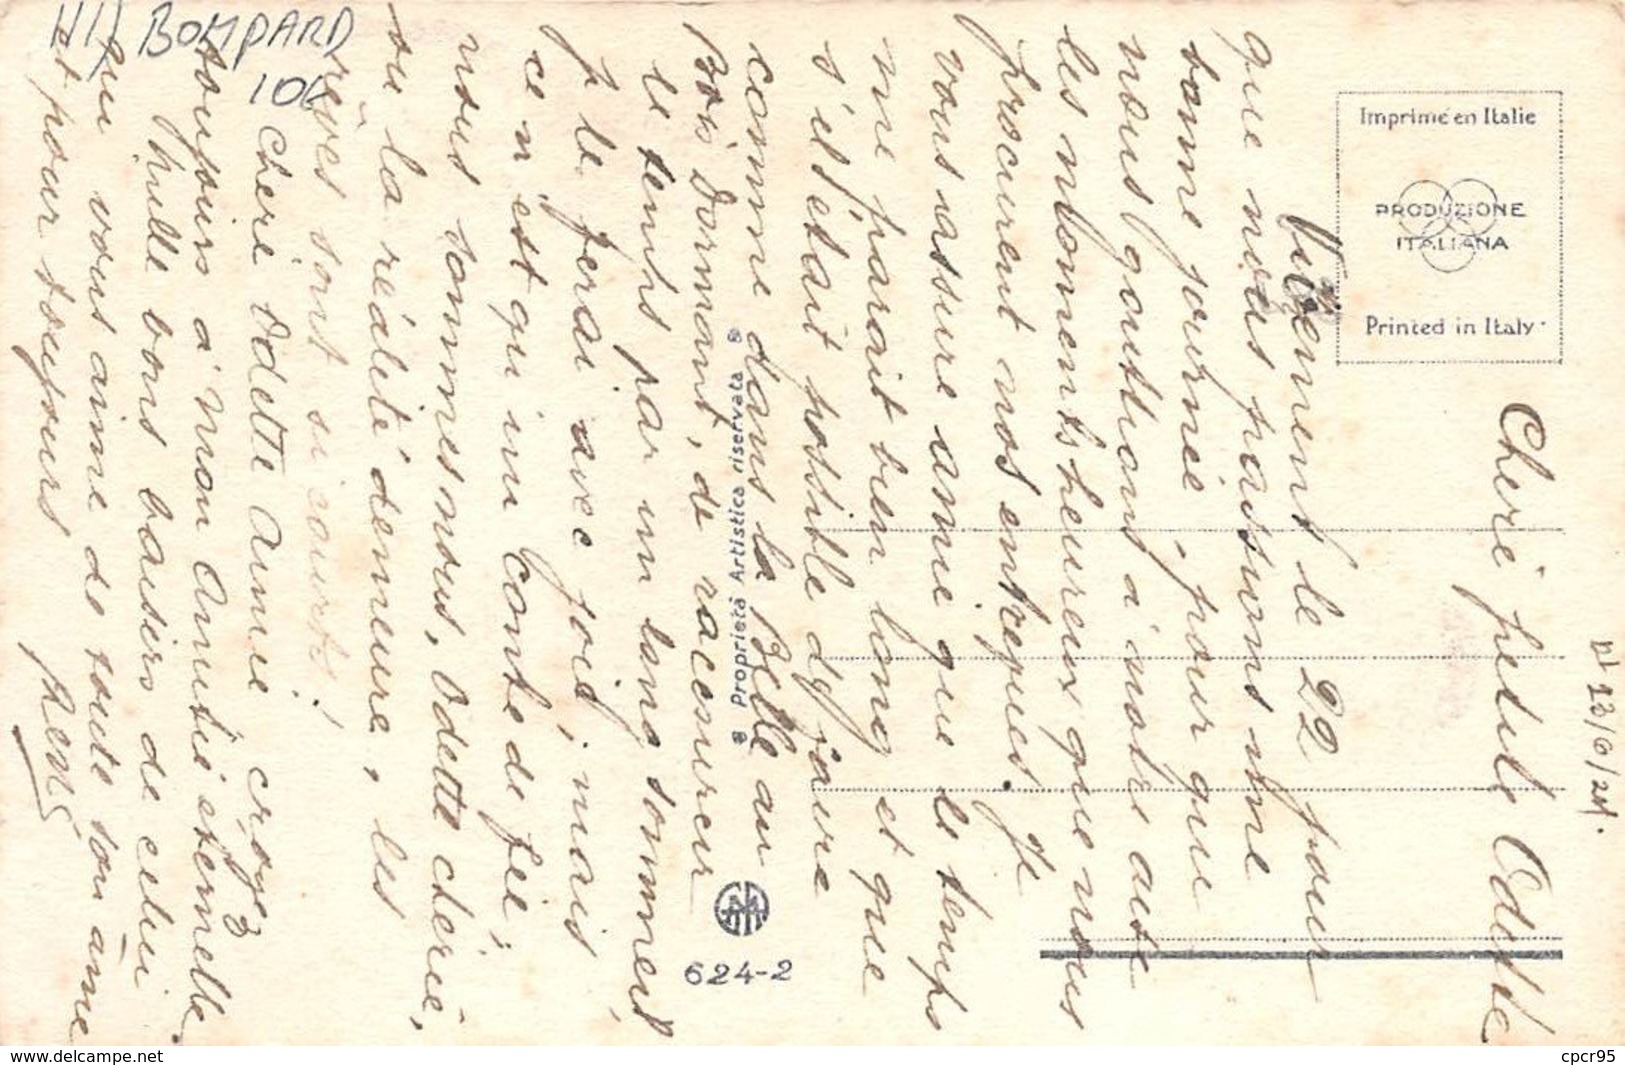 HIJ BOMPARD
10€
Imprimé en Italie
PRODUZIONE
ITALIANA
Printed in Italy
® Proprietà Artistica riservata ®
624-2
Chérie petite Odette
Vivement le 22 pour
que nous passions une
bonne journée, pour que
nous goutions à notre aise
les moments heureux que nous
procurent nos entrevues. Je
vous assure amie que le temps
me parait bien long et que
s'il s'était possible de faire
comme dans la Belle au
Bois Dormant, de raccourcir
le temps par un long sommeil
je le ferai avec joie, mais
ce n'est qu'un conte de fée,
nous sommes nous, Odette chérie,
où la réalité demeure, les
rêves sont si courts!
Chère Odette Amie croyez
toujours à mon amitié eternelle.
Mille bons baisers de celui
qui vous aime de toute son âme
et pour toujours
René
cpcr95